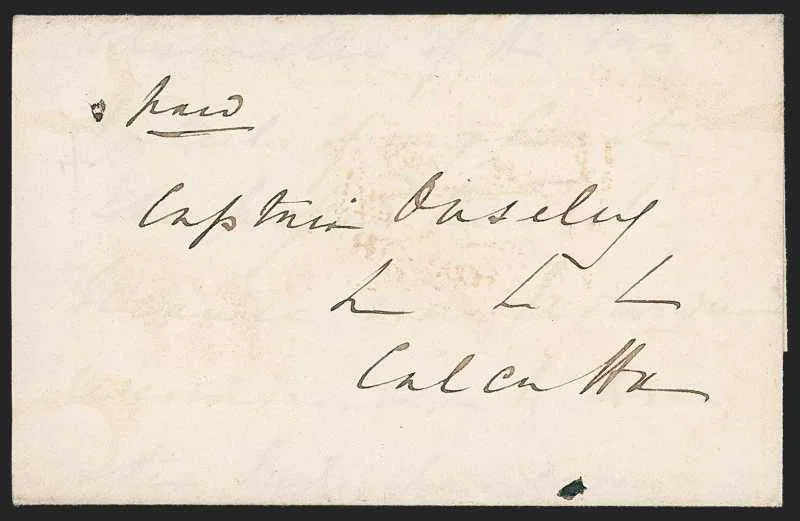 paid
Captain Ouseley
Calcutta